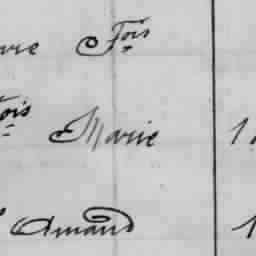 vre Fois
ois Marie 1
Amand 1